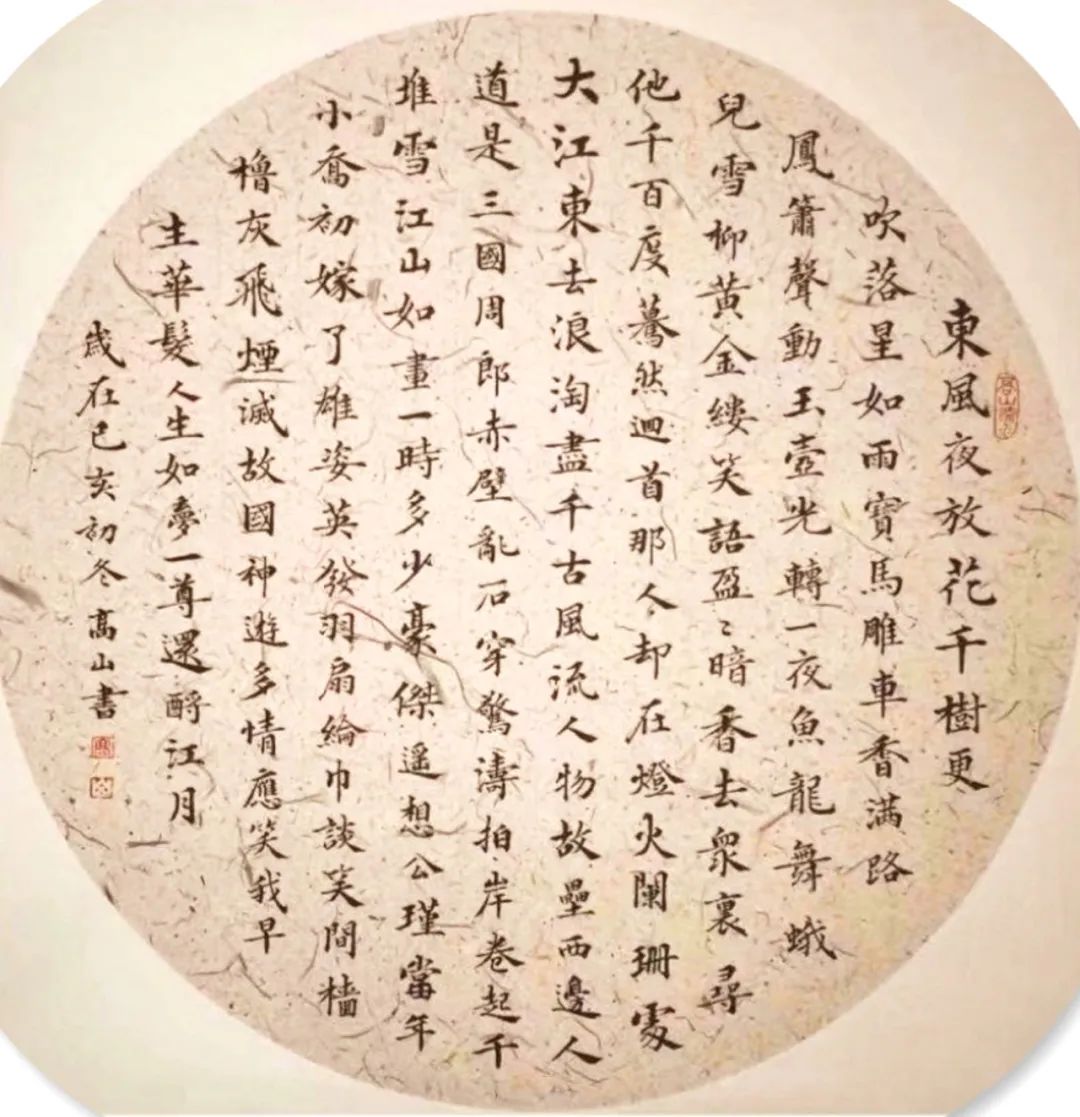 東風夜放花千樹更
吹落星如雨寶馬雕車香滿路
鳳簫聲動玉壺光轉一夜魚龍舞蛾
兒雪柳黃金縷笑語盈〻暗香去衆裏尋
他千百度驀然迴首那人却在燈火闌珊處
大江東去浪淘盡千古風流人物故壘西邊人
道是三國周郎赤壁亂石穿驚濤拍岸卷起千
堆雪江山如畫一時多少豪傑遥想公瑾當年
小喬初嫁了雄姿英發羽扇綸巾談笑間檣
櫓灰飛煙滅故國神遊多情應笑我早
生華髮人生如夢一尊還酹江月
歲在己亥初冬高山書